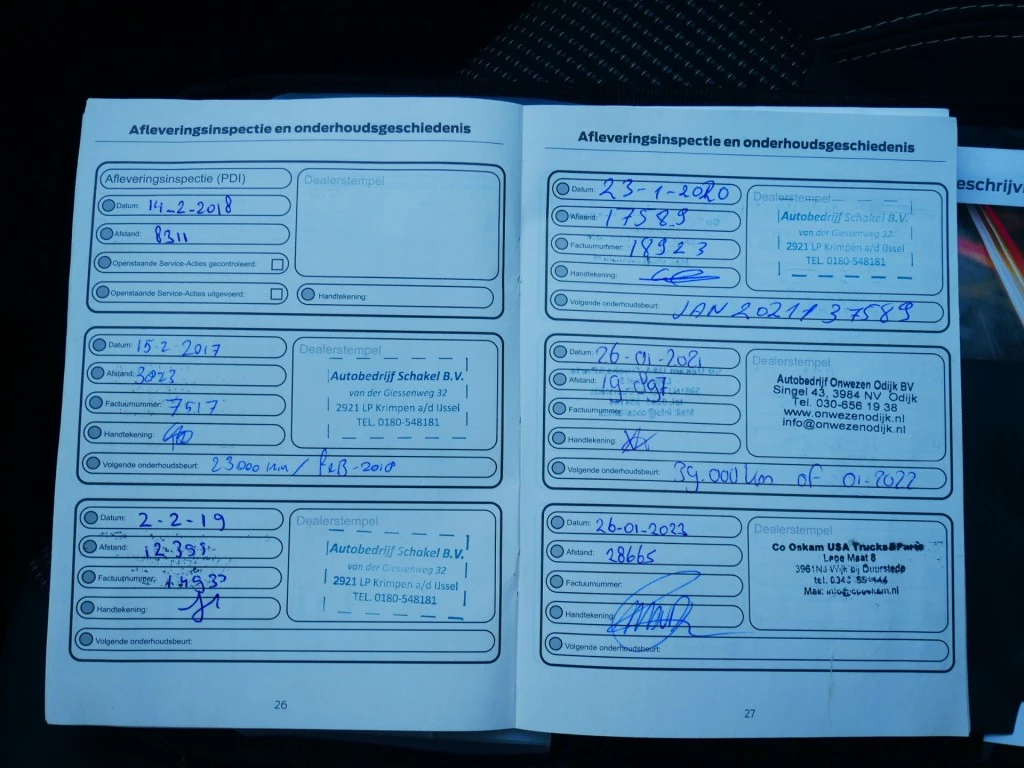 Afleveringsinspectie en onderhoudsgeschiedenis
Afleveringsinspectie (PDI)
Datum: 14-2-2018
Afstand: 8311
Openstaande Service-Acties gecontroleerd:
Openstaande Service-Acties uitgevoerd:
Dealerstempel
Handtekening:
Datum: 15-2-2017
Afstand: 3823
Factuurnummer: 7517
Handtekening:
Volgende onderhoudsbeurt: 23000 km / feB-2018
Dealerstempel
Autobedrijf Schakel B.V.
van der Giessenweg 32
2921 LP Krimpen a/d IJssel
TEL. 0180-548181
Datum: 2-2-19
Afstand:
Factuurnummer:
Handtekening:
Volgende onderhoudsbeurt:
Dealerstempel
Autobedrijf Schakel B.V.
van der Giessenweg 32
2921 LP Krimpen a/d IJssel
TEL. 0180-548181
26
Afleveringsinspectie en onderhoudsgeschiedenis
Datum: 23-1-2020
Afstand: 17589
Factuurnummer: 18923
Handtekening:
Volgende onderhoudsbeurt: JAN 2021 / 37589
Dealerstempel
Autobedrijf Schakel B.V.
van der Giessenweg 32
2921 LP Krimpen a/d IJssel
TEL. 0180-548181
Datum: 26-01-2021
Afstand: 19.897
Factuurnummer:
Handtekening:
Volgende onderhoudsbeurt: 39.000 km of 01-2022
Dealerstempel
Autobedrijf Onwezen Odijk BV
Singel 43, 3984 NV Odijk
Tel. 030-656 19 38
www.onwezenodijk.nl
info@onwezenodijk.nl
Datum: 26-01-2023
Afstand: 28665
Factuurnummer:
Handtekening:
Volgende onderhoudsbeurt:
Dealerstempel
Co Oskam USA Trucks&Parts
Lage Maat 8
3961NJ Wijk bij Duurstede
tel. 0343
Mail:
27
eschrijv